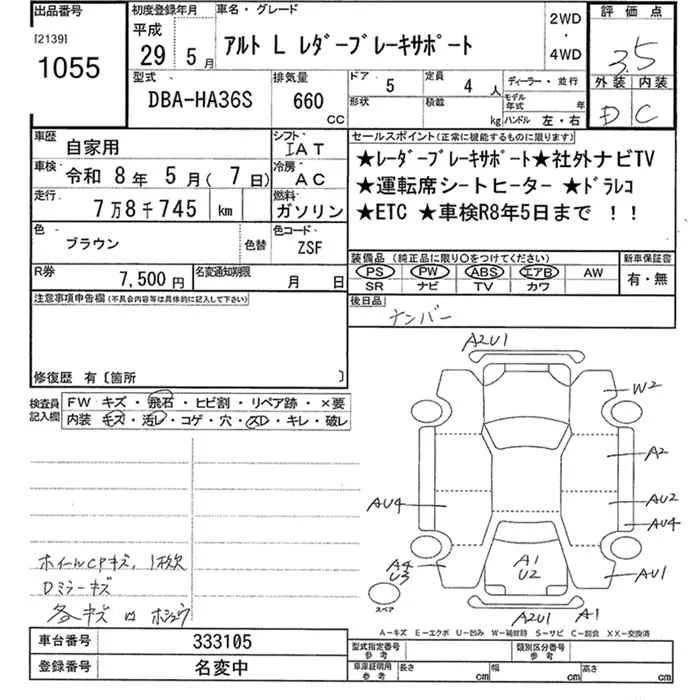 出品番号
[2139]
1055
初度登録年月
平成
29 5 月
車名・グレード
アルト L レダーブレーキサポート
2WD
・
4WD
評価点
3.5
外装 内装
D C
型式
DBA-HA36S
排気量
660
CC
ドア 5
定員 4 人
形状
積載 kg
ディーラー・並行
モデル年式 年
ハンドル 左・右
車歴 自家用
シフト IAT
車検 令和 8 年 5 月 ( 7 日)
冷房 AC
走行 7 万 8 千 745 km
燃料 ガソリン
色 ブラウン 色替
色コード ZSF
R券 7,500 円
名変通知期限 月 日
セールスポイント(正常に機能するものに限ります)
★レーダーブレーキサポート★社外ナビTV
★運転席シートヒーター ★ドラレコ
★ETC ★車検R8年5日まで !!
装備品 (純正品に限り○をつけてください)
PS PW ABS エアB AW
SR ナビ TV カワ
新車保証書
有・無
後日品
ナンバー
注意事項申告欄(不具合内容等は具体的に記入して下さい)
修復歴 有〔箇所 〕
検査員記入欄
FW キズ・飛石・ヒビ割・リペア跡・×要
内装 キズ・汚レ・コゲ・穴・スレ・キレ・破レ
A2U1
W2
A2
AU2
AU4
AU4
A4
U3
A1
U2
AU1
A2U1
A1
スペア
ホイールCPキズ、1枚欠
Dミラーキズ
各キズ
A-キズ E-エクボ U-凹み W-補修跡 S-サビ C-腐食 XX-交換済
車台番号 333105
登録番号 名変中
型式指定番号
参考
類別区分番号
参考
車庫証明用
参考
長さ cm
幅 cm
高さ cm